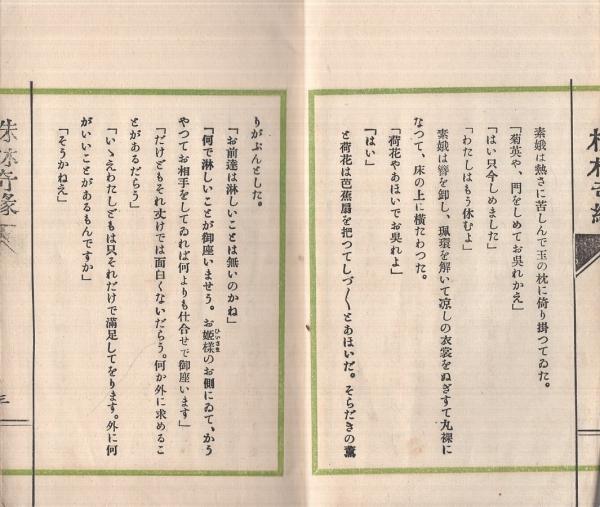 素娥は熱さに苦しんで玉の枕に倚り掛つてゐた。
「菊英や、門をしめてお呉れかえ」
「はい只今しめました」
「わたしはもう休むよ」
素娥は簪を卸し、珮環を解いて凉しの衣裳をぬぎすて丸裸に
なつて、床の上に横たわつた。
「荷花やあほいでお呉れよ」
「はい」
と荷花は芭蕉扇を把つてしづ〳〵とあほいだ。そらだきの薫
りがぷんとした。
「お前達は淋しいことは無いのかね」
「何で淋しいことが御座いませう。お姫様のお側にゐて、かう
ひいさま
やつてお相手をしてゐれば何よりも仕合せで御座います」
「だけどもそれ丈けでは面白くないだらう。何か外に求めるこ
とがあるだらう」
「いゝえわたしどもは只それだけで滿足してをります。外に何
がいいことがあるもんですか」
「そうかねえ」
奇緣